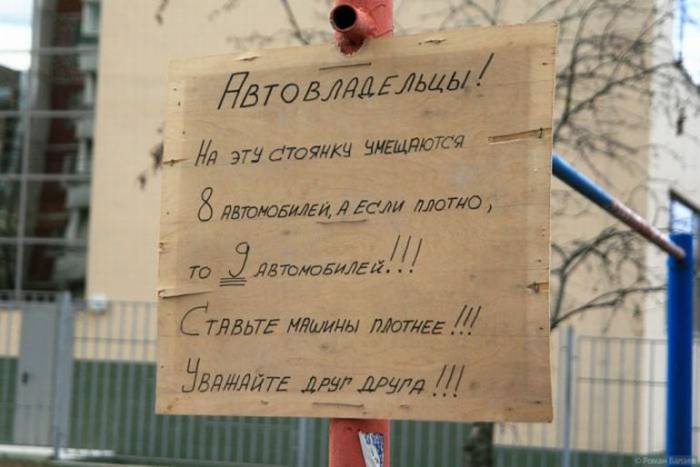 Автовладельцы!
На эту стоянку умещаются
8 автомобилей, а если плотно,
то 9 автомобилей!!!
Ставьте машины плотнее!!!
Уважайте друг друга!!!